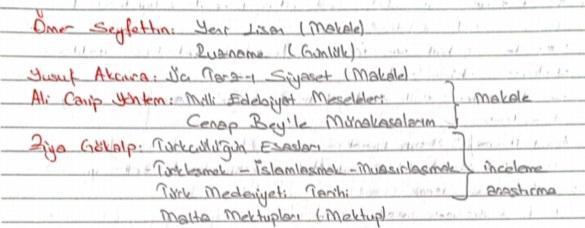 Ömer Seyfettin: Yeni Lisan (Makale)
Ruzname (Günlük)
Yusuf Akçura: Üç Tarz-ı Siyaset (Makale)
Ali Canip Yöntem: Milli Edebiyat Meseleleri
Cenap Bey'le Münakaşalarım
makale
Ziya Gökalp: Türkçülüğün Esasları
Türkleşmek - İslamlaşmak - Muasırlaşmak
Türk Medeniyeti Tarihi
inceleme
araştırma
Malta Mektupları (Mektup)